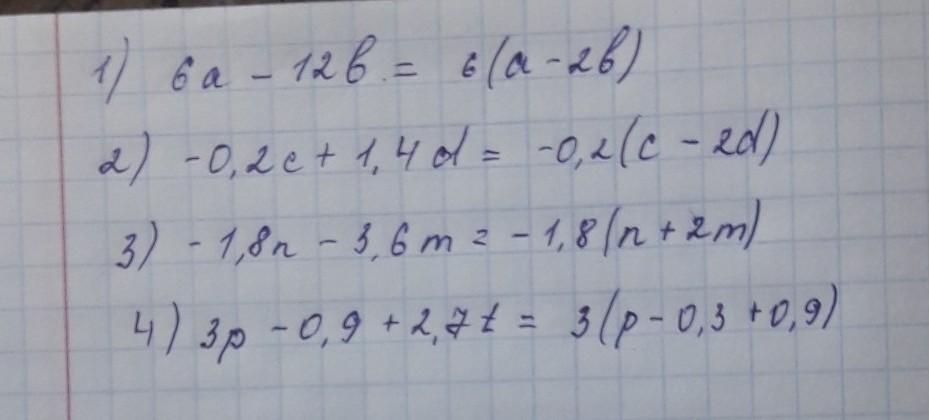 1) 6a - 12b = 6(a - 2b)
2) -0,2c + 1,4d = -0,2(c - 2d)
3) -1,8n - 3,6m = -1,8(n + 2m)
4) 3p - 0,9 + 2,7t = 3(p - 0,3 + 0,9)